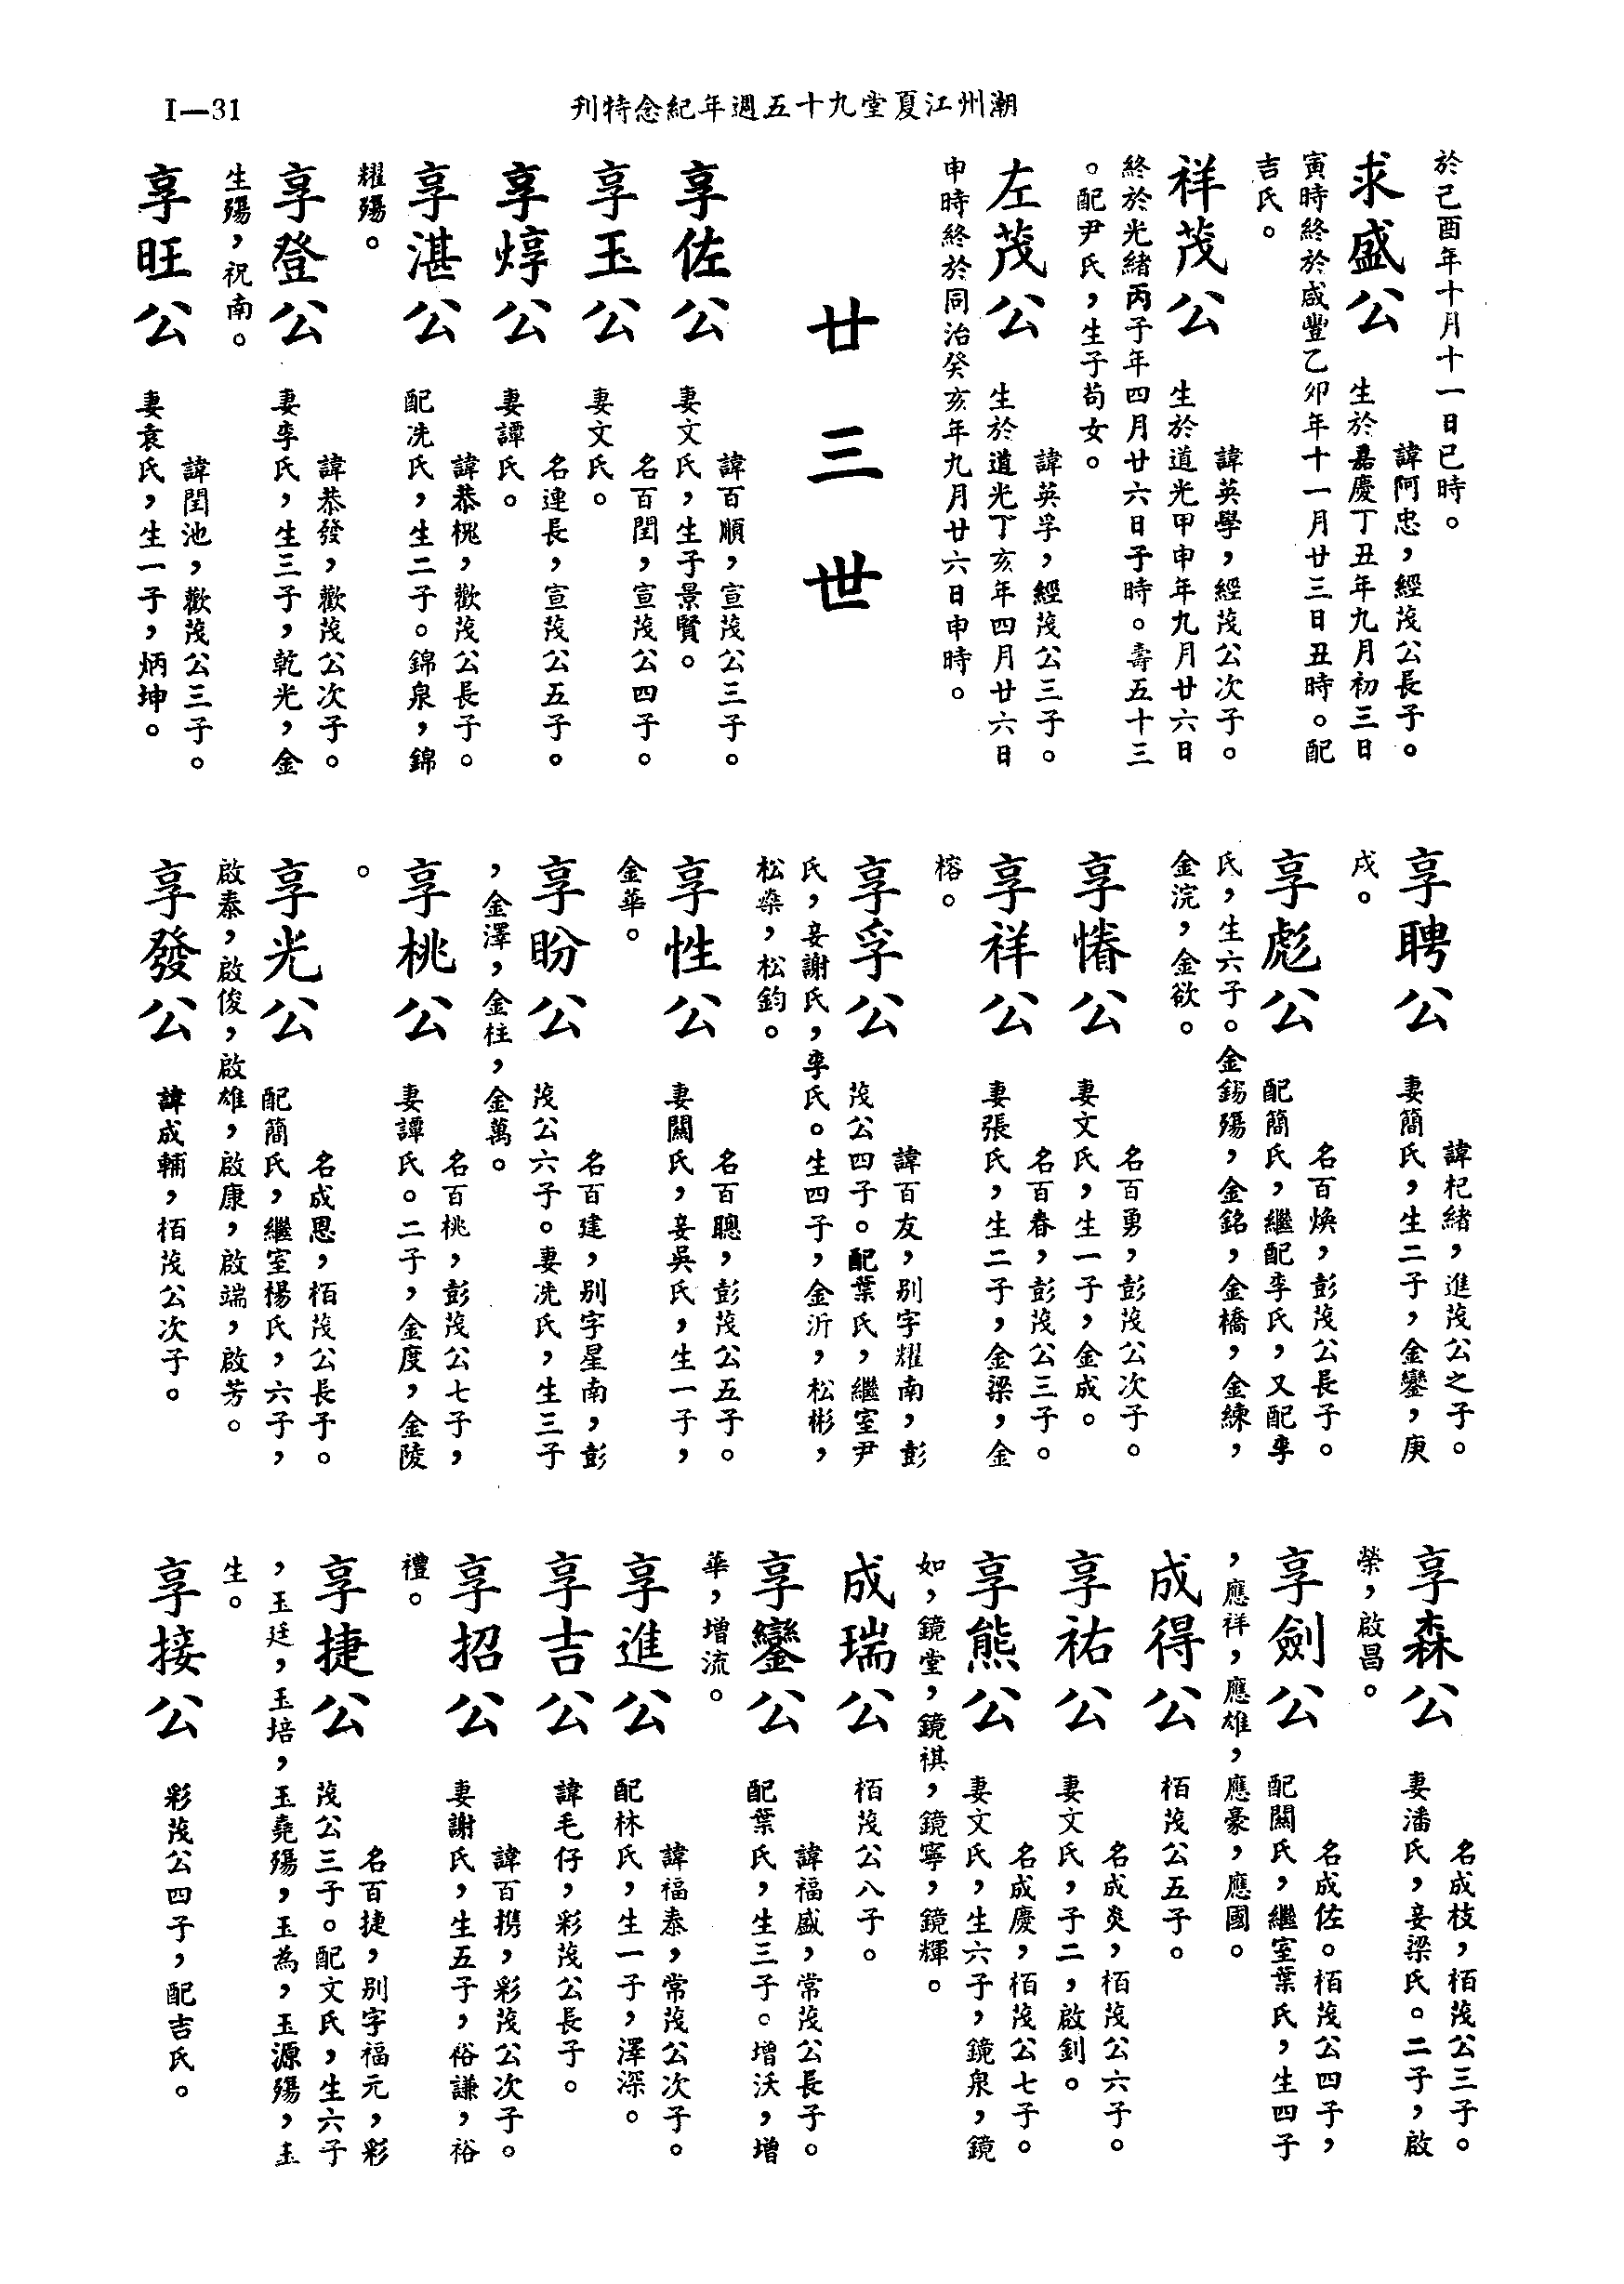 I—31
潮州江夏堂九十五週年紀念特刊
於己酉年十月十一日巳時。
求盛公
諱阿忠，經茂公長子。
生於嘉慶丁丑年九月初三日
寅時終於咸豐乙卯年十一月廿三日丑時。配
吉氏。
祥茂公
諱英學，經茂公次子。
生於道光甲申年九月廿六日
終於光緒丙子年四月廿六日子時。壽五十三
。配尹氏，生子苟女。
左茂公
諱英孚，經茂公三子。
生於道光丁亥年四月廿六日
申時終於同治癸亥年九月廿六日申時。
廿三世
享佐公
諱百順，宣茂公三子。
妻文氏，生子景賢。
享玉公
名百閏，宣茂公四子。
妻文氏。
享焞公
名連長，宣茂公五子。
妻譚氏。
享湛公
諱恭槐，歡茂公長子。
配冼氏，生二子。錦泉，錦
耀殤。
享登公
諱恭發，歡茂公次子。
妻李氏，生三子，乾光，金
生殤，祝南。
享旺公
諱閏池，歡茂公三子。
妻袁氏，生一子，炳坤。
享聘公
諱杞緒，進茂公之子。
妻簡氏，生二子，金鑾，庚
戌。
享彪公
名百煥，彭茂公長子。
配簡氏，繼配李氏，又配李
氏，生六子。金錫殤，金銘，金橋，金練，
金浣，金欲。
享惷公
名百勇，彭茂公次子。
妻文氏，生一子，金成。
享祥公
名百春，彭茂公三子。
妻張氏，生二子，金梁，金
榕。
享孚公
諱百友，別字耀南，彭
茂公四子。配葉氏，繼室尹
氏，妾謝氏，李氏。生四子，金沂，松彬，
松燊，松鈞。
享性公
名百聰，彭茂公五子。
妻關氏，妾吳氏，生一子，
金華。
享盼公
名百建，別字星南，彭
茂公六子。妻冼氏，生三子
，金澤，金柱，金萬。
享桃公
名百桃，彭茂公七子，
妻譚氏。二子，金度，金陵
。
享光公
名成恩，栢茂公長子。
配簡氏，繼室楊氏，六子，
啟泰，啟俊，啟雄，啟康，啟端，啟芳。
享發公
諱成輔，栢茂公次子。
享森公
名成枝，栢茂公三子。
妻潘氏，妾梁氏。二子，啟
榮，啟昌。
享劍公
名成佐。栢茂公四子，
配關氏，繼室葉氏，生四子
，應祥，應雄，應豪，應國。
成得公
栢茂公五子。
享祐公
名成炎，栢茂公六子。
妻文氏，子二，啟釗。
享熊公
名成慶，栢茂公七子。
妻文氏，生六子，鏡泉，鏡
如，鏡堂，鏡祺，鏡寧，鏡輝。
成瑞公
栢茂公八子。
享鑾公
諱福盛，常茂公長子。
配葉氏，生三子。增沃，增
華，增流。
享進公
諱福泰，常茂公次子。
配林氏，生一子，澤深。
享吉公
諱毛仔，彩茂公長子。
享招公
諱百携，彩茂公次子。
妻謝氏，生五子，裕謙，裕
禮。
享捷公
名百捷，別字福元，彩
茂公三子。配文氏，生六子
，玉廷，玉培，玉堯殤，玉為，玉源殤，玉
生。
享接公
彩茂公四子，配吉氏。